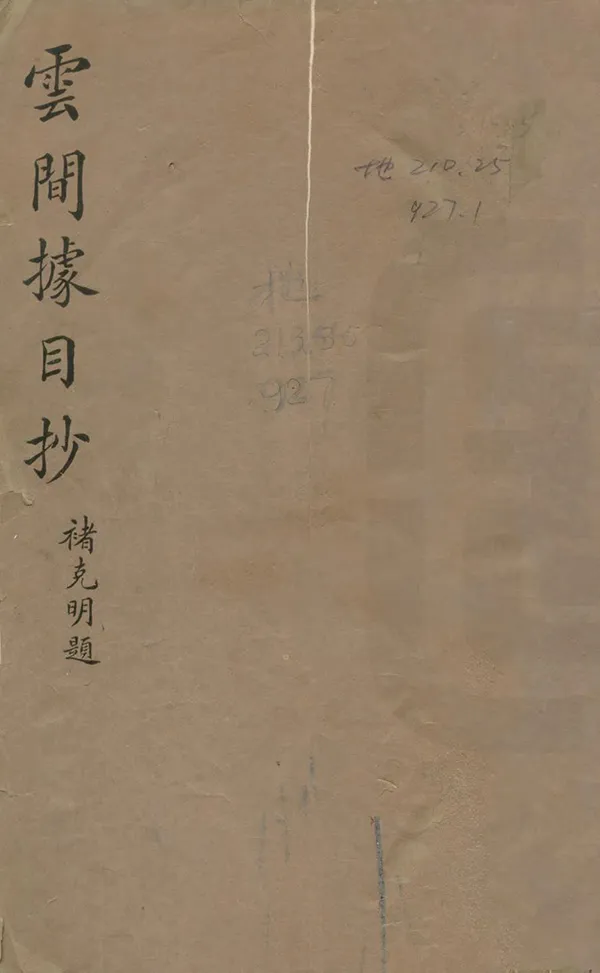 雲間據目抄
褚克明題
地 210.25
927.1
地
213.85
927